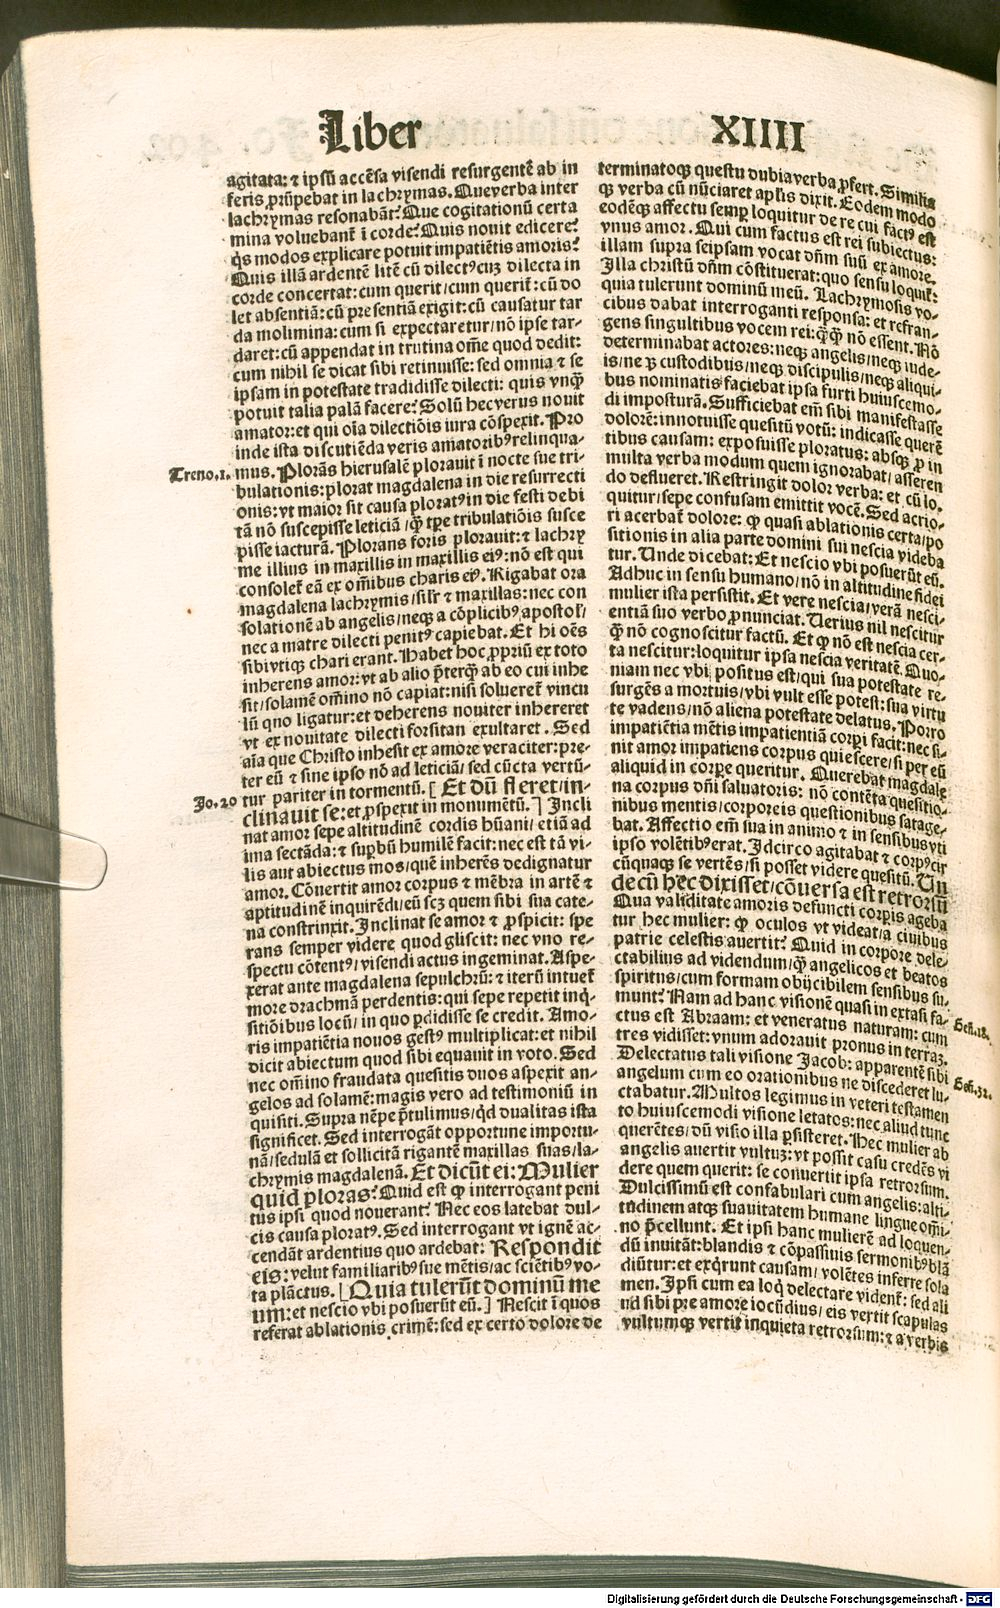 Liber XIIII
agitata: ⁊ ipsũ accẽsa visendi resurgentẽ ab in
feris prũpebat in lachrymas. Que verba inter
lachrymas resonabãt? Que cogitationũ certa
mina voluebant̃ ĩ corde? Quis nouit edicere?
q̃s modos explicare potuit impatiẽtis amoris?
Quis illã ardentẽ litẽ cũ dilectꝰ cuʒ dilecta in
corde concertat: cum querit / cum querit̃: cũ do
let absentiã: cũ presentiã exigit: cũ causatur tar
da molimina: cum si expectaretur / nõ ipse tar-
daret: cũ appendat in trutina om̃e quod dedit:
cum nihil se dicat sibi retinuisse: sed omnia ⁊ se
ipsam in potestate tradidisse dilecti: quis vnq̃
potuit talia palã facere? Solũ hec verus nouit
amator: et qui oĩa dilectiõis iura cõspexit. Pro
inde ista discutiẽda veris amatoribꝰ relinqua-
Treno.1. mus. Plorãs hierusalẽ plorauit ĩ nocte sue tri-
bulationis: plorat magdalena in die resurrecti
onis: vt maior sit causa ploratꝰ in die festi debi
tã nõ suscepisse leticiã / q̃ tp̃e tribulatiõis susce
pisse iacturã. Plorans foris plorauit: ⁊ lachry
me illius in maxillis in maxillis eiꝰ: nõ est qui
consolet̃ eã ex om̃ibus charis eiꝰ. Rigabat ora
magdalena lachrymis / sil̃r ⁊ maxillas: nec con
solationẽ ab angelis / neq̃ a cõplicibꝰ apostol̃ /
nec a matre dilecti penitꝰ capiebat. Et hi oẽs
sibi vtiq̃ chari erant. Habet hoc ꝓpriũ ex toto
inherens amor: vt ab alio p̃terq̃ ab eo cui inhe
sit / solamẽ om̃ino nõ capiat: nisi solueret̃ vincu
lũ quo ligatur: et deherens nouiter inhereret
vt ex nouitate dilecti forsitan exultaret. Sed
aĩa que Christo inhesit ex amore veraciter: pre-
ter eũ ⁊ sine ipso nõ ad leticiã / sed cũcta vertũ-
Jo.20 tur pariter in tormentũ. [ Et dũ fleret / in-
clinauit se: et ꝓspexit in monumẽtũ. ] Incli
nat amor sepe altitudinẽ cordis hũani / etiã ad
ima sectãda: ⁊ supbũ humilẽ facit: nec est tã vi-
lis aut abiectus mos / quẽ inherẽs dedignatur
amor. Cõuertit amor corpus ⁊ mẽbra in artẽ ⁊
aptitudinẽ inquirẽdi / eũ scʒ quem sibi sua cate-
na constrinxit. Inclinat se amor ⁊ ꝓspicit: spe
rans semper videre quod gliscit: nec vno re-
spectu cõtentꝰ / visendi actus ingeminat. Aspe-
xerat ante magdalena sepulchrũ: ⁊ iterũ intuet̃
more drachmã perdentis: qui sepe repetit inq̃-
sitiõibus locũ / in quo ꝑdidisse se credit. Amo-
ris impatiẽtia nouos gestꝰ multiplicat: et nihil
dicit abiectum quod sibi equauit in voto. Sed
nec om̃ino fraudata quesitis duos aspexit an-
gelos ad solamẽ: magis vero ad testimoniũ in
quisiti. Supra nẽpe p̃tulimus / q̃d dualitas ista
significet. Sed interrogãt opportune importu-
nã / sedulã et sollicitã rigantẽ maxillas suas / la-
chrymis magdalenã. Et dicũt ei: Mulier
quid ploras? Quid est ꝙ interrogant peni
tus ipsi quod nouerant? Nec eos latebat dul-
cis causa ploratꝰ. Sed interrogant vt ignẽ ac-
cendãt ardentius quo ardebat: Respondit
eis: velut familiaribꝰ sue mẽtis / ac sciẽtibꝰ vo-
ta plãctus. [ Quia tulerũt dominũ me
um: et nescio vbi posuerũt eũ. ] Nescit ĩ quos
referat ablationis crimẽ: sed ex certo dolore de
terminatoq̃ questu dubia verba ꝓfert. Similia
q̃ verba cũ nũciaret apl̃is dixit. Eodem modo
eodẽq̃ affectu semp̃ loquitur de re cui factꝰ est
vnus amor. Qui cum factus est rei subiectus:
illam supra seipsam vocat dñm suũ ex amore.
Illa christũ dñm cõstituerat: quo sensu loquit̃:
quia tulerunt dominũ meũ. Lachrymosis vo-
cibus dabat interroganti responsa: et refran-
gens singultibus vocem rei: q̃q̃ nõ essent. Nõ
determinabat actores: neq̃ angelis / neq̃ iude-
is / neq̃ custodibus / neq̃ discipulis / neq̃ aliqui-
bus nominatis faciebat ipsa furti huiuscemo-
di imposturã. Sufficiebat em̃ sibi manifestasse
dolorẽ: innotuisse quesitũ votũ: indicasse querẽ
tibus causam: exposuisse ploratus: absq̃ ꝓ in
multa verba modum quem ignorabat / asseren
do deflueret. Restringit dolor verba: et cũ lo-
quitur / sepe confusam emittit vocẽ. Sed acrio-
ri acerbat̃ dolore: ꝙ quasi ablationis certa / po
sitionis in alia parte domini sui nescia videba
tur. Unde dicebat: Et nescio vbi posuerũt eũ.
Adhuc in sensu humano / nõ in altitudine fidei
mulier ista persistit. Et vere nescia / verã nesci-
entiã suo verbo ꝓnunciat. Uerius nil nescitur
q̃ nõ cognoscitur factũ. Et ꝙ nõ est nescia cer-
ta nescitur: loquitur ipsa nescia veritatẽ. Quo-
niam nec vbi positus est / qui sua potestate re-
surgẽs a mortuis / vbi vult esse potest: sua virtu
te vadens / nõ aliena potestate delatus. Porro
impatiẽtia mẽtis impatientiã corpi facit: nec si-
nit amor impatiens corpus quiescere / si per eũ
aliquid in corpe queritur. Querebat magdale
na corpus dñi saluatoris: nõ contẽta quesitio-
nibus mentis / corporeis questionibus satage-
bat. Affectio em̃ sua in animo ⁊ in sensibus vti
ipso volẽtibꝰ erat. Idcirco agitabat ⁊ corpꝰ cir
cũquaq̃ se vertẽs / si posset videre quesitũ. Un
de cũ hec dixisset / cõuersa est retrorsũ
Qua validitate amoris defuncti corpis ageba
tur hec mulier: ꝙ oculos vt videat / a ciuibus
patrie celestis auertit? Quid in corpore dele-
ctabilius ad videndum / q̃ angelicos et beatos
spiritus / cum formam obijcibilem sensibus su-
munt? Nam ad hanc visionẽ quasi in extasi fa-
ctus est Abraam: et veneratus naturam: cum Geñ.18.
tres vidisset: vnum adorauit pronus in terraʒ.
Delectatus tali visione Jacob: apparentẽ sibi
angelum cum eo orationibus ne discederet lu- Geñ.32.
ctabatur. Multos legimus in veteri testamen
to huiuscemodi visione letatos: nec aliud tunc
querẽtes / dũ visio illa ꝑsisteret. Hec mulier ab
angelis auertit vultuʒ: vt possit casu credẽs vi
dere quem querit: se conuertit ipsa retrorsum.
Dulcissimũ est confabulari cum angelis: alti-
tudinem atq̃ suauitatem humane lingue om̃i-
no p̃cellunt. Et ipsi hanc mulierẽ ad loquen-
dũ inuitãt: blandis ⁊ cõpassiuis sermonibꝰ blã
diũtur: et exq̃runt causam / volẽtes inferre sola
men. Ipsi cum ea loq̃ delectare vident̃: sed ali
ud sibi pre amore iocũdius / eis vertit scapulas
vultumq̃ vertit inquieta retrorsum: ⁊ a verbis
Digitalisierung gefördert durch die Deutsche Forschungsgemeinschaft - DFG